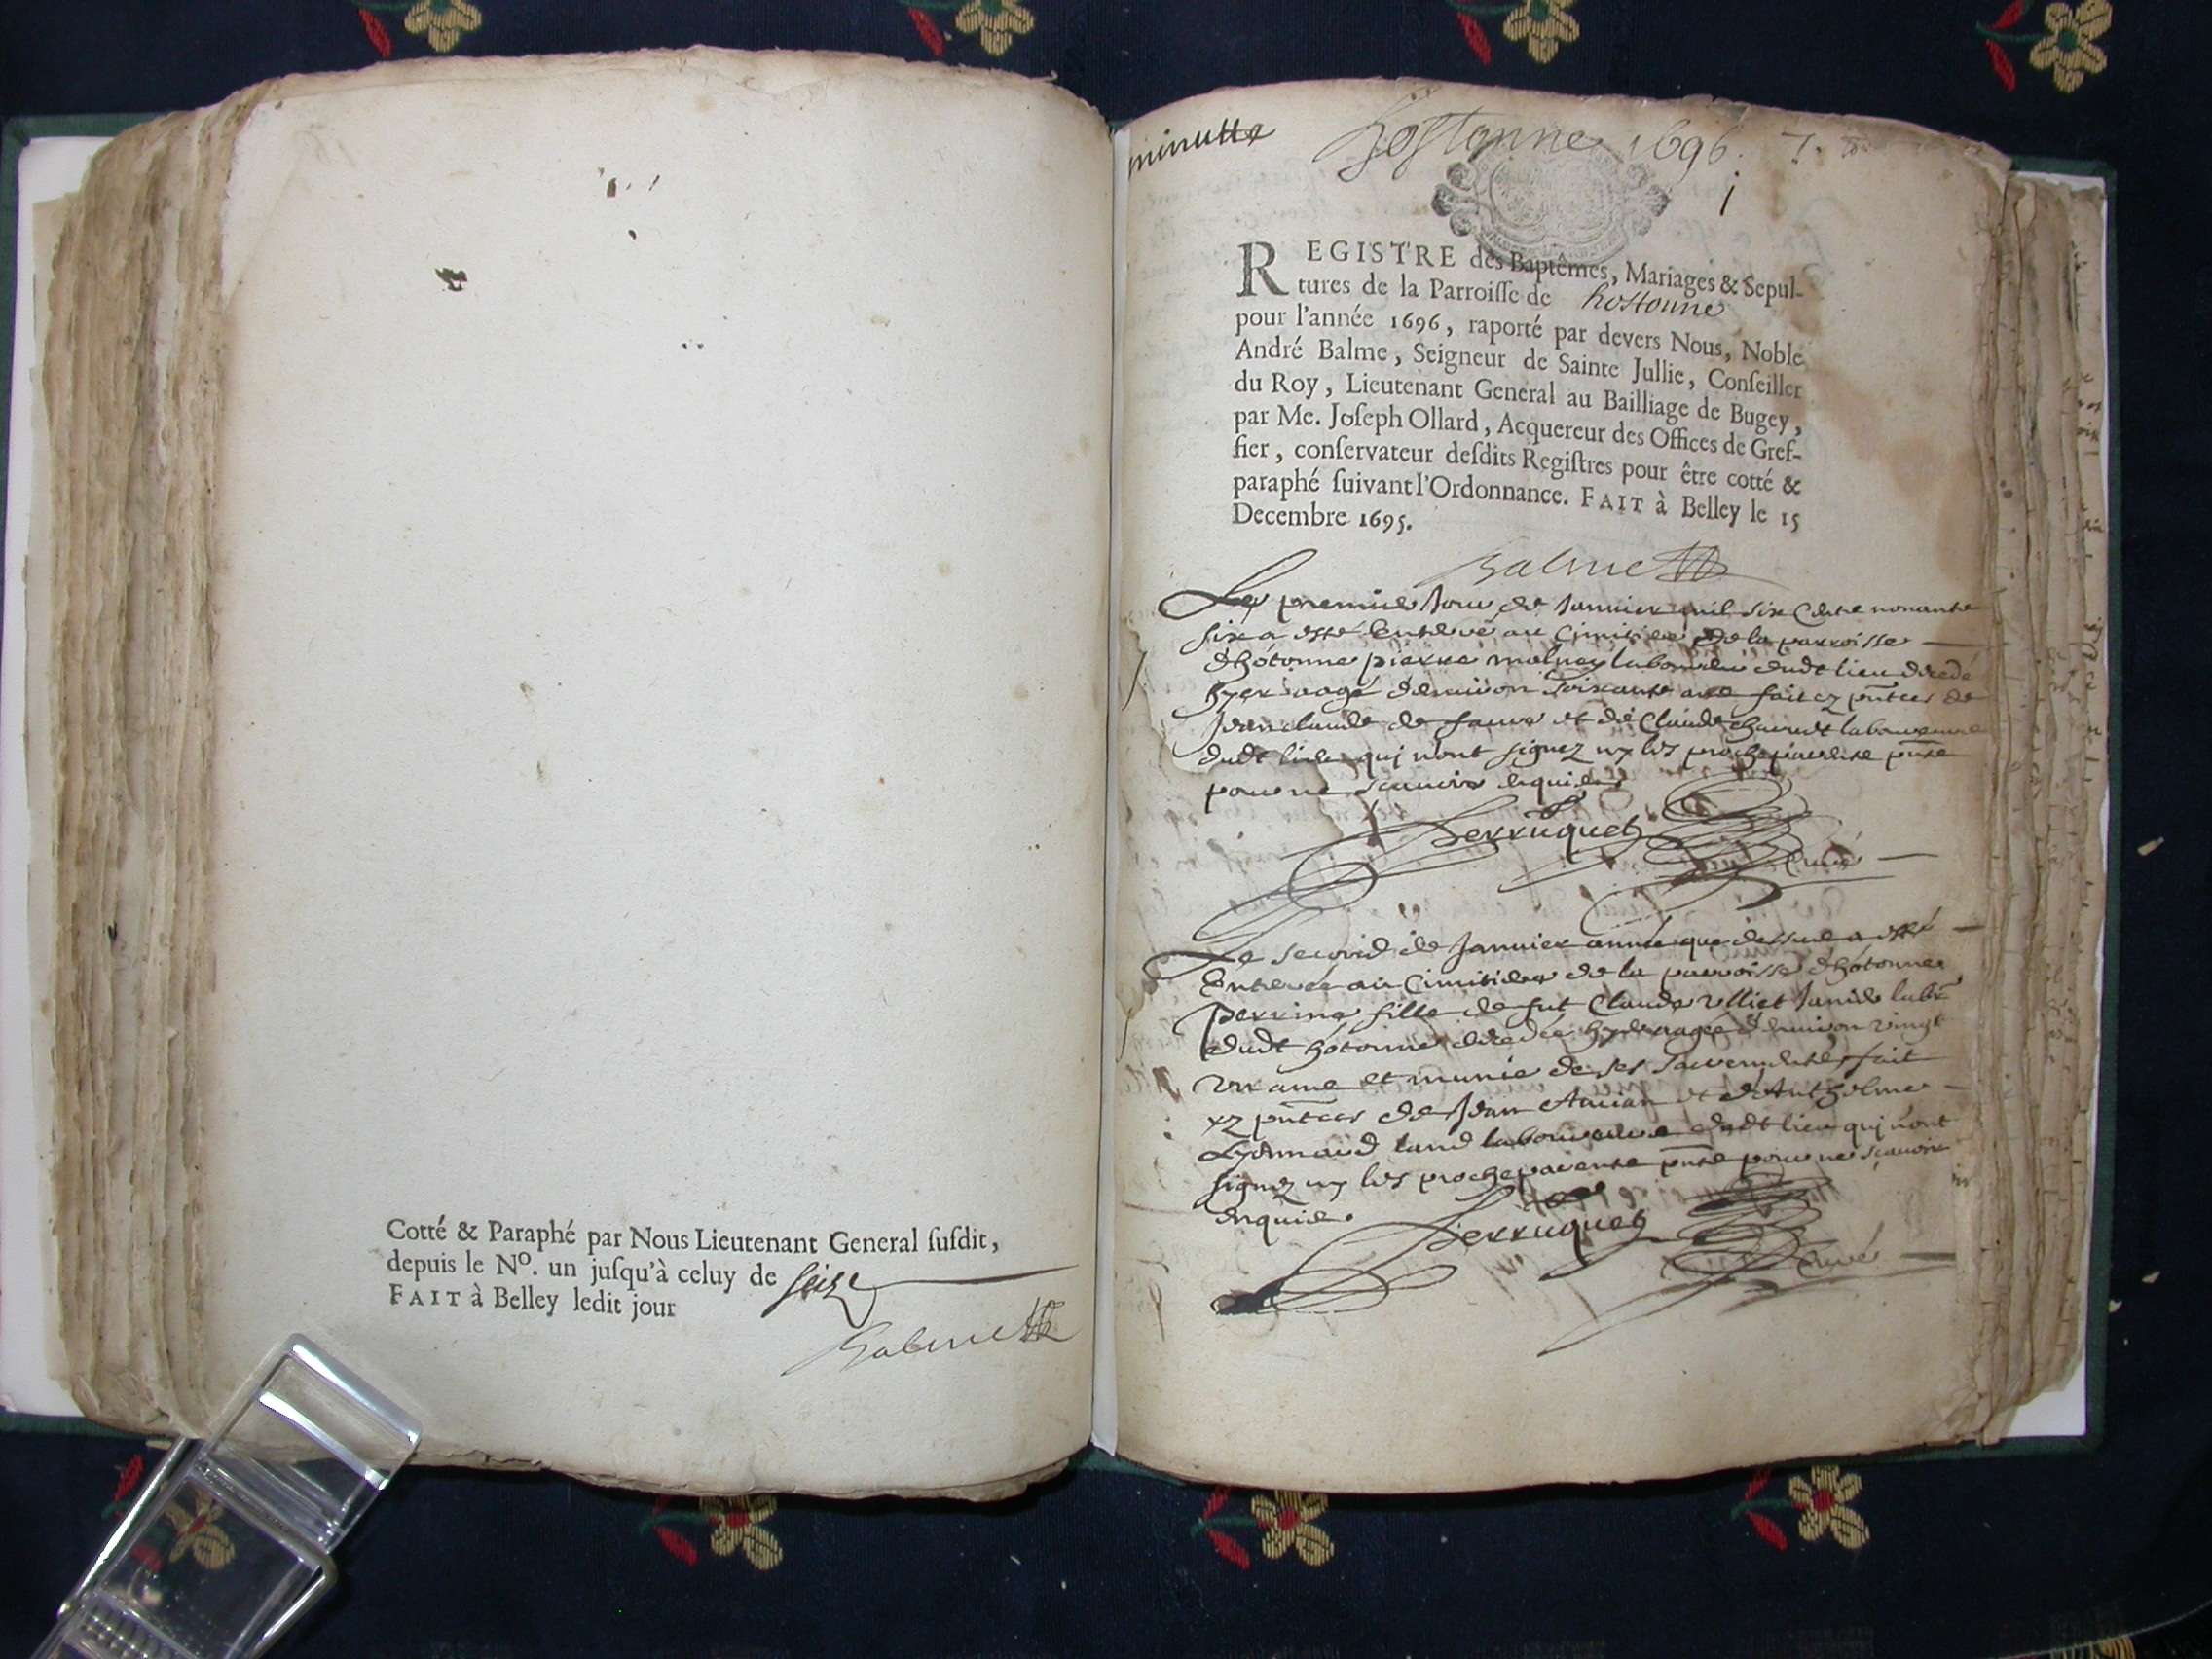 Cotté & Paraphé par Nous Lieutenant General ſuſdit,
depuis le Nº. un juſqu'à celuy de seize
FAIT à Belley ledit jour
Balme
minutte
Hostonne 1696. 7.
1
REGISTRE des Baptêmes, Mariages & Sepul-
tures de la Parroiſſe de hostonne
pour l'année 1696, raporté par devers Nous, Noble
André Balme, Seigneur de Sainte Jullie, Conſeiller
du Roy, Lieutenant General au Bailliage de Bugey,
par Me. Joſeph Ollard, Acquereur des Offices de Gref-
fier, conſervateur deſdits Regiſtres pour être cotté &
paraphé ſuivant l'Ordonnance. FAIT à Belley le 15
Decembre 1695.
Balme
Le premier Jour de Janvier mil six Cents nonante
six a esté Enterré au Cimitiere de la parroisse
d'hótonne pierre molney laboureur dudt lieu décédé
hyer aagé d'environ soixante ans fait ez pntces de
Jean claude de faure et de Claude laboureurs
dudt lieu quj n'ont signez ny les proche parents pnts
pour ne scavoir enquis
Perruquet
Curé
Le second de Janvier année que dessus a esté
Enterrée au Cimitiere de la parroisse d'hótonne
Perrine fille de fut Claude Ulliet Janin labr
dudt hótonne décédée hyer aagée d'environ vingt
un ans et munie de ses sacrements fait
ez pntces de Jean et d'Anthelme
Lyonnard laboureurs dudt lieu quj n'ont
signez ny les proche parents pnts pour ne scavoir
enquis.
Perruquet
Curé